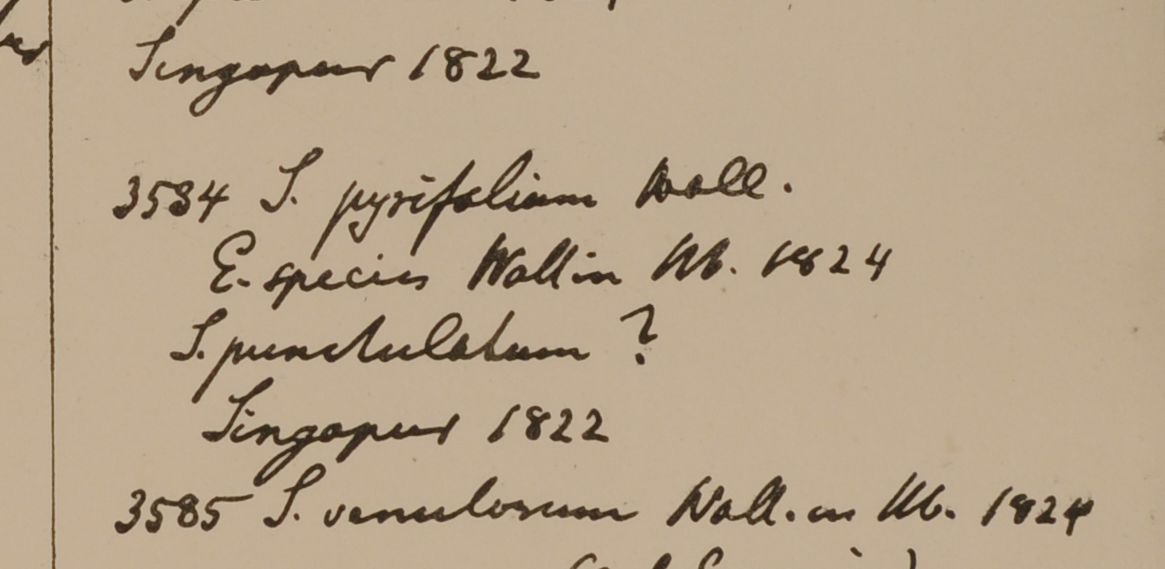 Singapur 1822
3584 S. pyrifolium Wall.
E. species Wall in Hb. 1824
S. punctulatum ?
Singapur 1822
3585 S. venulosum Wall. in Hb. 1824